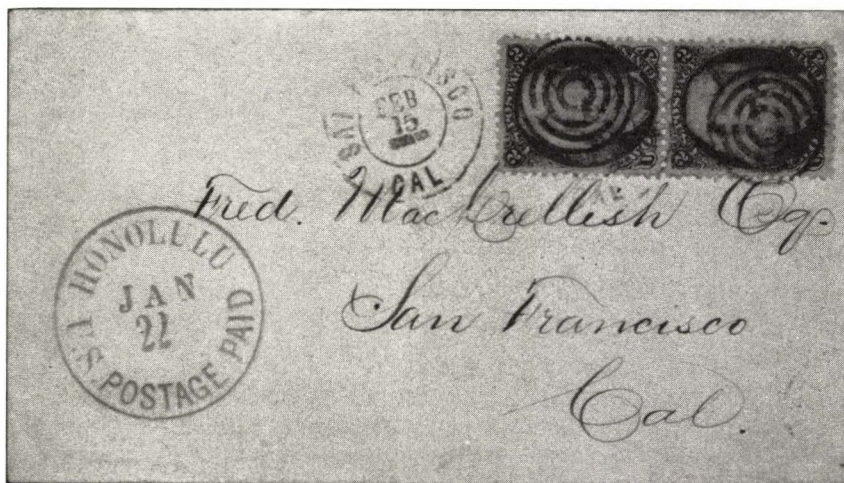 SAN FRANCISCO
FEB
15
CAL
Fred. MacCrellish Esq.
San Francisco
Cal.
HONOLULU
U.S. POSTAGE PAID
JAN
22